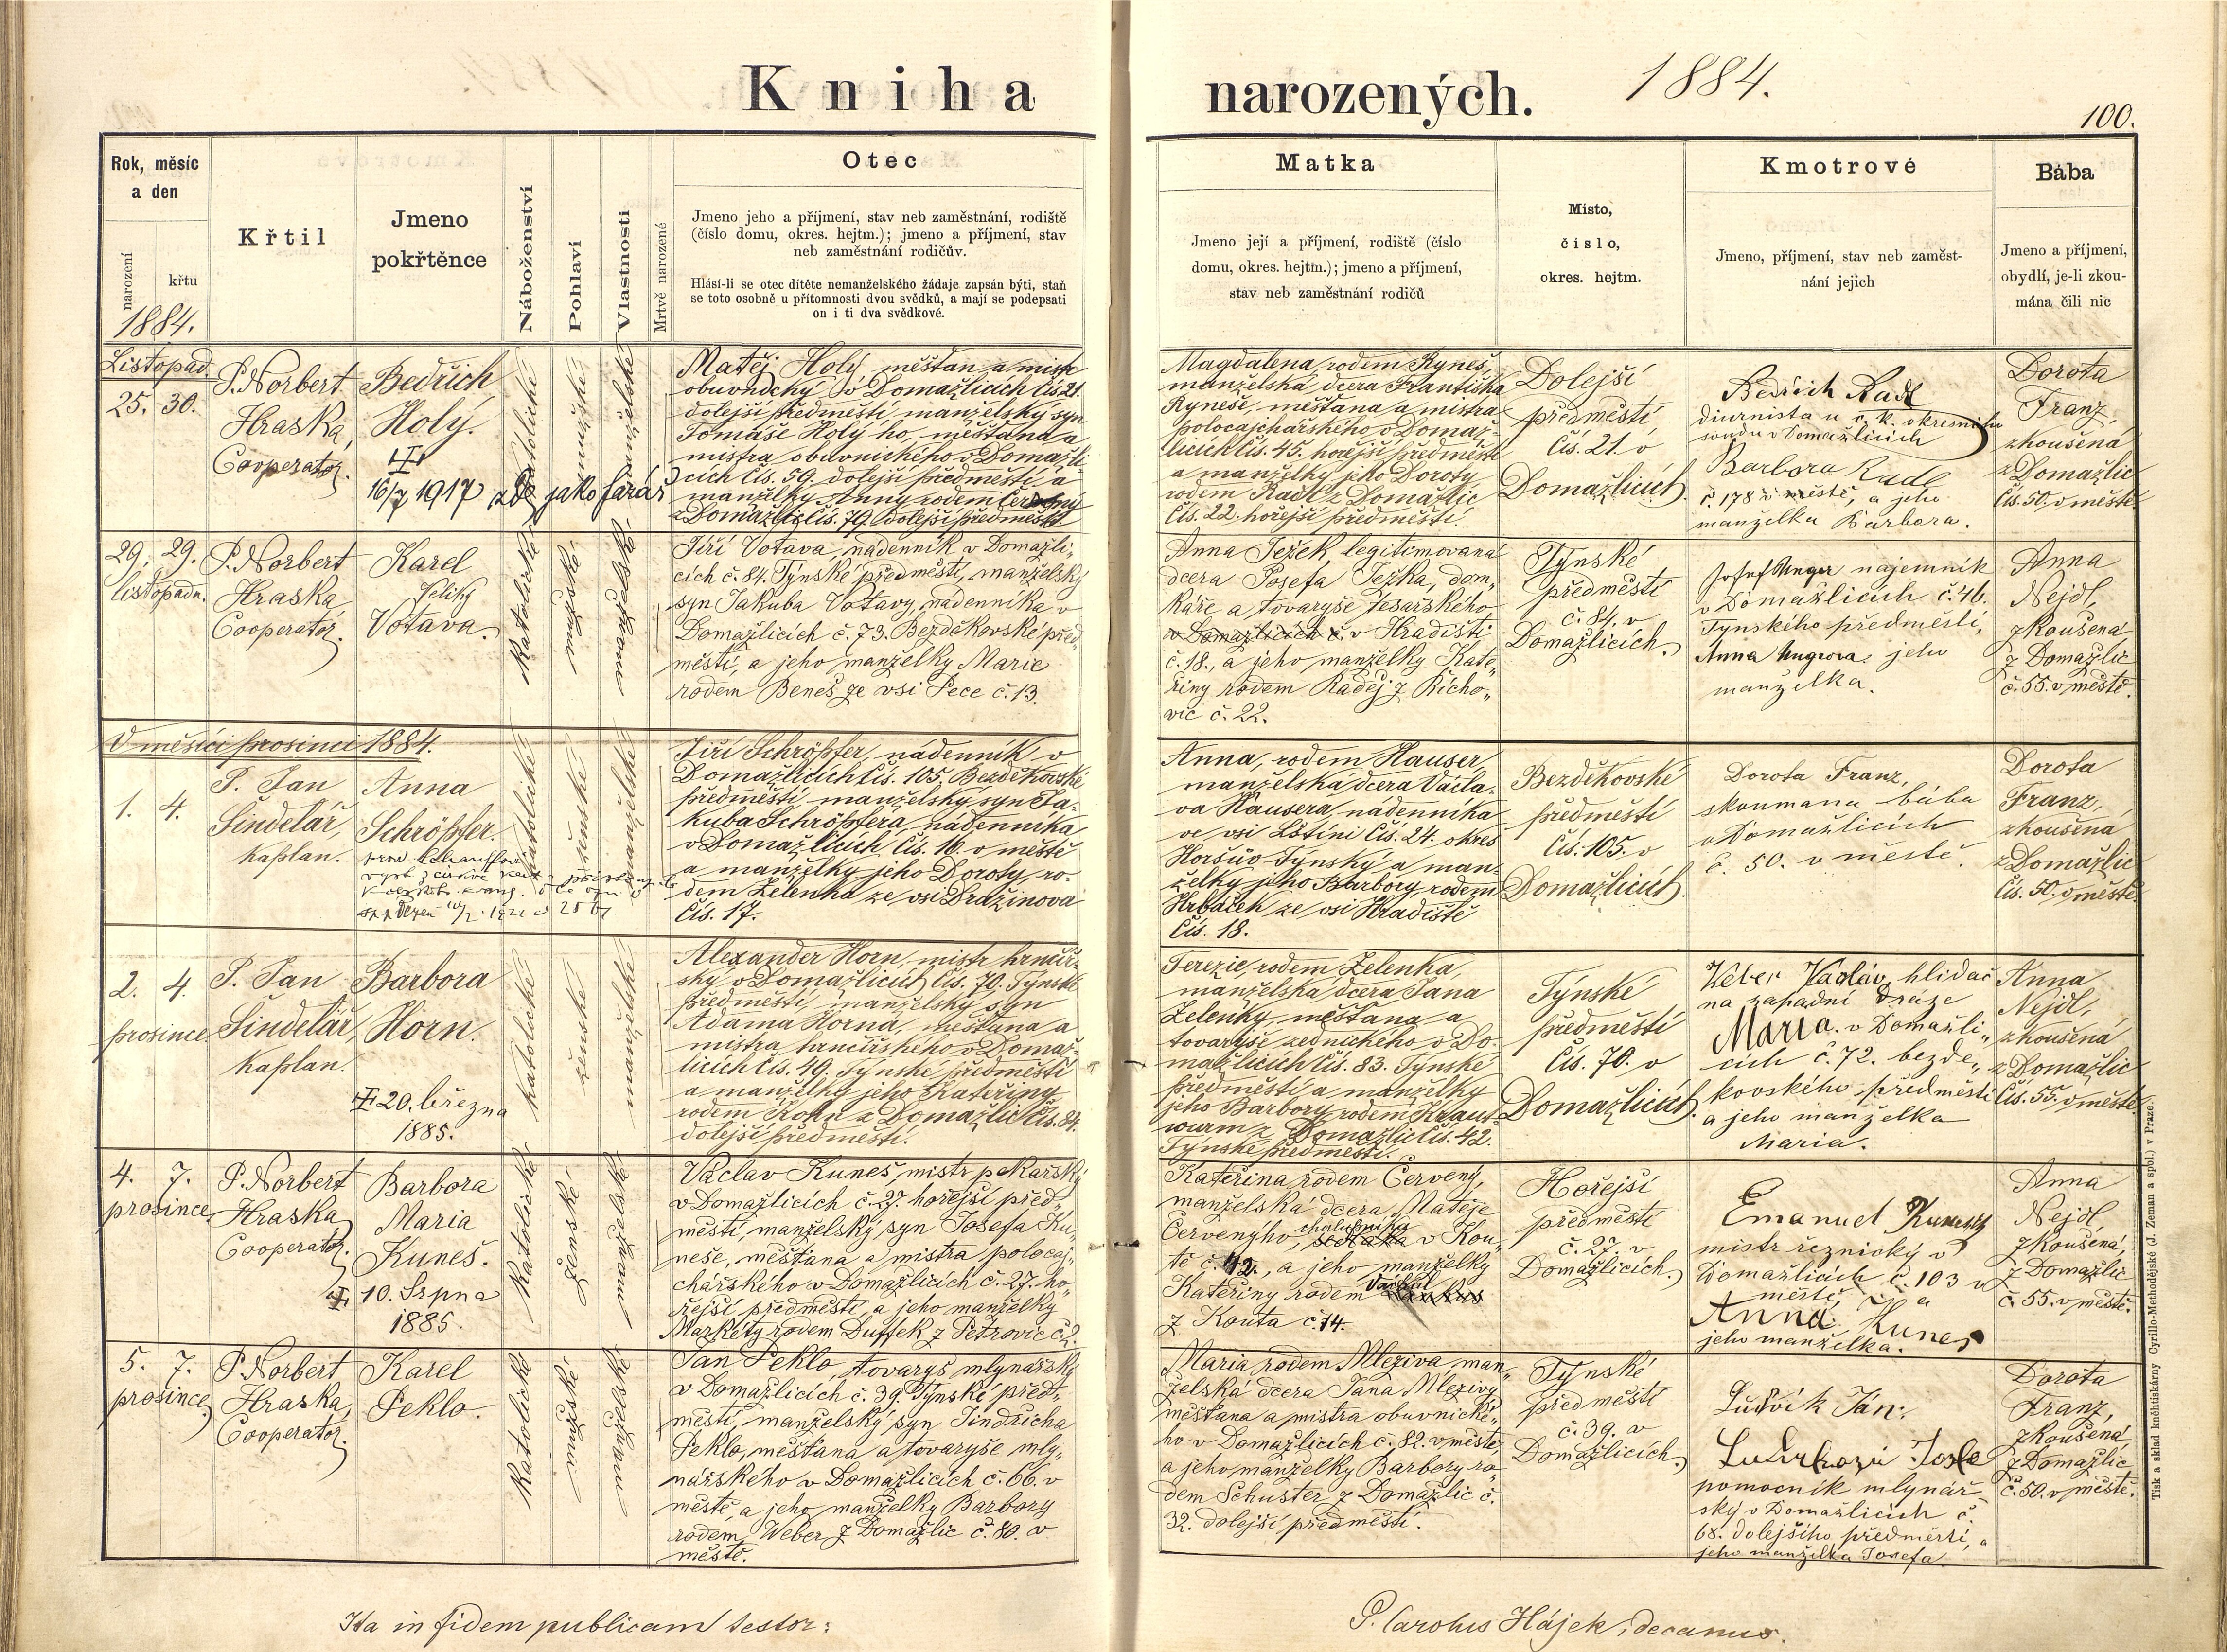 Kniha narozených. 1884.
100.
Rok, měsíc
a den
narození
křtu
1884.
Křtil
Jmeno
pokřtěnce
Náboženství
Pohlaví
Vlastnosti
Mrtvě narozené
Otec
Jmeno jeho a příjmení, stav neb zaměstnání, rodiště
(číslo domu, okres. hejtm.); jmeno a příjmení, stav
neb zaměstnání rodičův.
Hlásí-li se otec dítěte nemanželského žádaje zapsán býti, staň
se toto osobně u přítomnosti dvou svědků, a mají se podepsati
on i ti dva svědkové.
Matka
Jmeno její a příjmení, rodiště (číslo
domu, okres. hejtm.); jmeno a příjmení,
stav neb zaměstnání rodičů
Misto,
čislo,
okres. hejtm.
Kmotrové
Jmeno, příjmení, stav neb zaměst-
nání jejich
Bába
Jmeno a příjmení,
obydlí, je-li zkou-
mána čili nic
Listopad
25. 30.
P. Norbert
Hraska,
Cooperator.
Bedřich
Holý.
16/7 1917 zde jako farář
katolické
mužské
Matěj Holý, měšťan a mistr
obuvnický v Domažlicích čís 21.
dolejší předměstí, manželský syn
Tomáše Holý ho, měšťana a
mistra obuvnického v Domažli-
cích čís. 59. dolejší předměstí, a
manželky Anny rodem Červený
z Domažlic čís. 79. dolejší předměstí.
Magdalena, rodem Ryneš,
manželská dcera Františka
Ryneše, měšťana a mistra
polocajchářského v Domaž-
licích čís. 45. hořejší předměstí
a manželky jeho Doroty
rodem Radl z Domažlic
čís. 22. hořejší předměstí.
Dolejší
předměstí
čís. 21. v
Domažlicích.
Bedřich Radl
diurnista u c. k. okresního
soudu v Domažlicích
Barbora Radl
č. 178 v městě, a jeho
manželka Barbora.
Dorota
Franz,
zkoušená
z Domažlic
čís. 50. v městě.
29. 29.
listopadu.
P. Norbert
Hraska,
Cooperator.
Karel
Votava.
Katolické
Jiří Votava, nádenník v Domažli-
cích č. 84. Týnské předměstí, manželský
syn Jakuba Votavy, nádenníka v
Domažlicích č. 73. Bezděkovské před-
městí, a jeho manželky Marie
rodem Beneš ze vsi Pece č. 13.
Anna Ježek, legitimovaná
dcera Josefa Ježka, dom-
káře a tovaryše tesařského
v Domažlicích č. v Hradišti
č. 18., a jeho manželky Kate-
řiny rodem Raděj z Kícho-
vic č. 22.
Týnské
předměstí
č. 84. v
Domažlicích.
Josef Unger najemník
v Domažlicích č. 46.
Tynského předměsti,
Anna Ungrova. jeho
manželka.
Anna
Nejdl,
zkoušená
z Domažlic
č. 55. v městě.
V měsíci prosinci 1884.
1. 4.
P. Jan
Šindelář,
kaplan.
Anna
Schröpfer.
katolické
ženské
Jiří Schröpfer, nádenník v
Domažlicích čís. 105. Bezděkovské
předměstí manželský syn Ja-
kuba Schröpfera, nádenníka
v Domažlicích, čís. 16. v městě
a manželky jeho Doroty, ro-
dem Zelenka ze vsi Dražinova
čís. 17.
Anna, rodem Hauser,
manželská dcera Václa-
va Hausera, nádenníka
ve vsi Lštíni čís. 24. okres
Horšův Týnský a man-
želky jeho Barbory rodem
Hrbáček ze vsi Hradiště
čís. 18.
Bezděkovské
předměstí
čís. 105. v
Domažlicích.
Dorota Franz,
skoumana bába
v Domažlicích
č. 50. v městě.
Dorota
Franz,
zkoušená
z Domažlic
čís. 50. v městě.
2. 4.
prosince.
P. Jan
Šindelář,
kaplan.
Barbora
Horn.
20. března
1885.
katolické
ženské
Alexander Horn, mistr hrnčíř-
ský v Domažlicích čís. 70. Týnské
předměstí, manželský syn
Adama Horna, měšťana a
mistra hrnčířského v Domaž-
licích čís. 49. Týnské předměstí
a manželky jeho Kateřiny
rodem Kohn z Domažlic čís. 84.
dolejší předměstí.
Terezie, rodem Zelenka,
manželská dcera Jana
Zelenky, měšťana a
tovaryše zednického v Do-
mažlicích čís. 83. Týnské
předměstí a manželky
jeho Barbory, rodem Kraut-
wurm z Domažlic čís. 42.
Týnské předměstí.
Týnské
předměstí
čís. 70. v
Domažlicích.
Weber Vaclav, hlidač
na zapadní Dráze
Maria. v Domažli-
cich č. 72. bezde-
kovského předměsti
a jeho manželka
Maria.
Anna
Nejdl,
zkoušená
z Domažlic
čís. 55. v městě.
4. 7.
prosince
P. Norbert
Hraska,
Cooperator.
Barbora
Maria
Kuneš.
10. Srpna
1885.
Katolické
ženské
Václav Kuneš, mistr pekařský
v Domažlicích č. 27. hořejší před-
městí, manželský syn Josefa Ku-
neše, měšťana a mistra polocaj-
chářského v Domažlicích č. 27. ho-
řejší předměstí a jeho manželky
Markéty rodem Duffek z Petrovic č. 2.
Kateřina rodem Červený,
manželská dcera Matěje
Červenýho, chalupníka sedláka v Kou-
tě č. 42., a jeho manželky
Kateřiny rodem
z Kouta č. 14.
Hořejší
předměstí
č. 27. v
Domažlicích.
Emanuel Kunesch
mistr řeznický v
Domažlicích č. 103 v
městě, a
Anna Kuneš
jeho manželka.
Anna
Nejdl,
zkoušená,
z Domažlic
č. 55. v městě.
5. 7.
prosince
P. Norbert
Hraska,
Cooperator.
Karel
Peklo.
Katolické
mužské
Jan Peklo, tovaryš mlynářský
v Domažlicích č. 39. Týnské před-
městí, manželský syn Jindřicha
Pekla, měšťana a tovaryše mly-
nářského v Domažlicích č. 66. v
městě, a jeho manželky Barbory
rodem Weber z Domažlic č. 80. v
městě.
Maria rodem Mleziva man-
želská dcera Jana Mlezivy
měšťana a mistra obuvnické-
ho v Domažlicích č. 82. v městě,
a jeho manželky Barbory ro-
dem Schuster z Domažlic č.
32. dolejší předměstí.
Týnské
předměstí
č. 39. v
Domažlicích.
Ludvík Ján.
pomocník mlynář-
ský v Domažlicích č.
68. dolejšího předměstí, a
jeho manželka Josefa.
Dorota
Franz,
zkoušená
z Domažlic
č. 50. v městě.
Ita in fidem publicam testor:
P. Carolus Hájek, decanus.
Tisk a sklad kněhtiskárny Cyrillo-Methodějské (J. Zeman a spol.) v Praze.